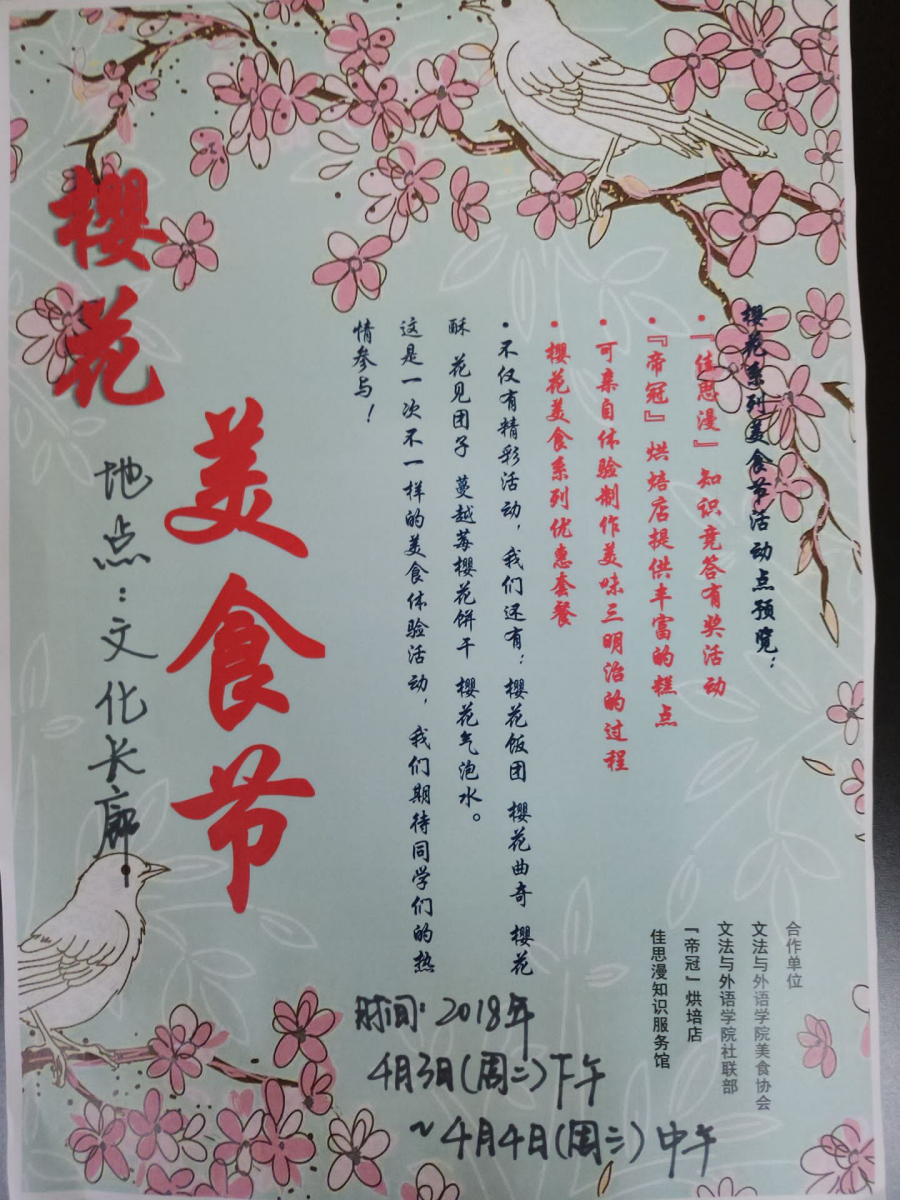 樱花
美食节
地点：文化长廊
樱花系列美食节活动点预览：
•『佳思漫』知识竞答有奖活动
•『帝冠』烘焙店提供丰富的糕点
•可亲自体验制作美味三明治的过程
•樱花美食系列优惠套餐
•不仅有精彩活动，我们还有：樱花饭团 樱花曲奇 樱花
酥 花见团子 蔓越莓樱花饼干 樱花气泡水。
这是一次不一样的美食体验活动，我们期待同学们的热
情参与！
合作单位
文法与外语学院美食协会
文法与外语学院社联部
『帝冠』烘培店
佳思漫知识服务馆
时间：2018年
4月3日（周二）下午
~4月4日（周三）中午